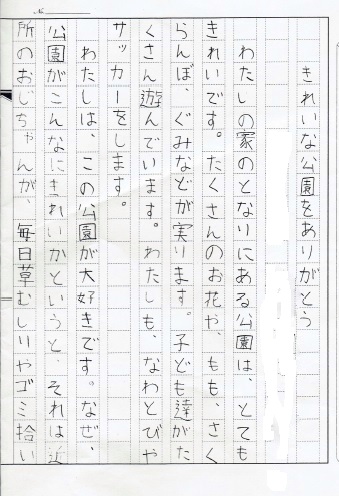 きれいな公園をありがとう
わたしの家のとなりにある公園は、とても
きれいです。たくさんのお花や、もも、さく
らんぼ、ぐみなどが実ります。子ども達がた
くさん遊んでいます。わたしも、なわとびや
サッカーをします。
わたしは、この公園が大好きです。なぜ、
公園がこんなにきれいかというと、それは近
所のおじちゃんが、毎日草むしりやゴミ拾い